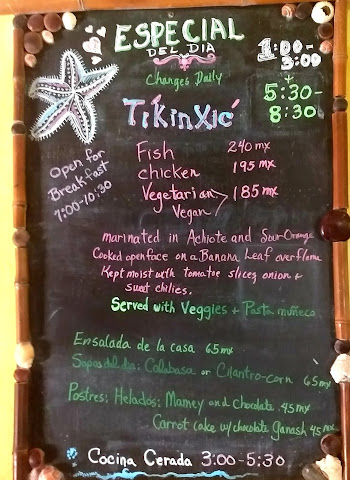 ESPECIAL
DEL DIA
Changes Daily
1:00-
3:00
+
5:30-
8:30
TikinXic
Open for
Breakfast
7:00-10:30
Fish 240 mx
chicken 195 mx
Vegetarian
Vegan 185 mx
marinated in Achiote and Sour-Orange
Cooked open face on a Banana Leaf over flame
Kept moist with tomatoe slices onion +
sweet chilies.
Served with Veggies + Pasta muñeco
Ensalada de la casa 65mx
Sopas del dia: Calabasa or Cilantro-corn 65mx
Postres: Helados: Mamey and chocolate 45mx
Carrot cake w/ chocolate Ganash 45mx
Cocina Cerada 3:00-5:30